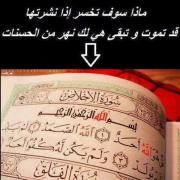 ماذا سوف تخسر إذا نشرتها
قد تموت و تبقى هي لك نهر من الحسنات
سُورَةُ الإِخْلَاصِ
بِسْمِ اللَّهِ الرَّحْمَٰنِ الرَّحِيمِ
قُلْ هُوَ اللَّهُ أَحَدٌ اللَّهُ الصَّمَدُ لَمْ يَلِدْ
وَلَمْ يُولَدْ وَلَمْ يَكُن لَّهُ
سُورَةُ الْفَلَقِ